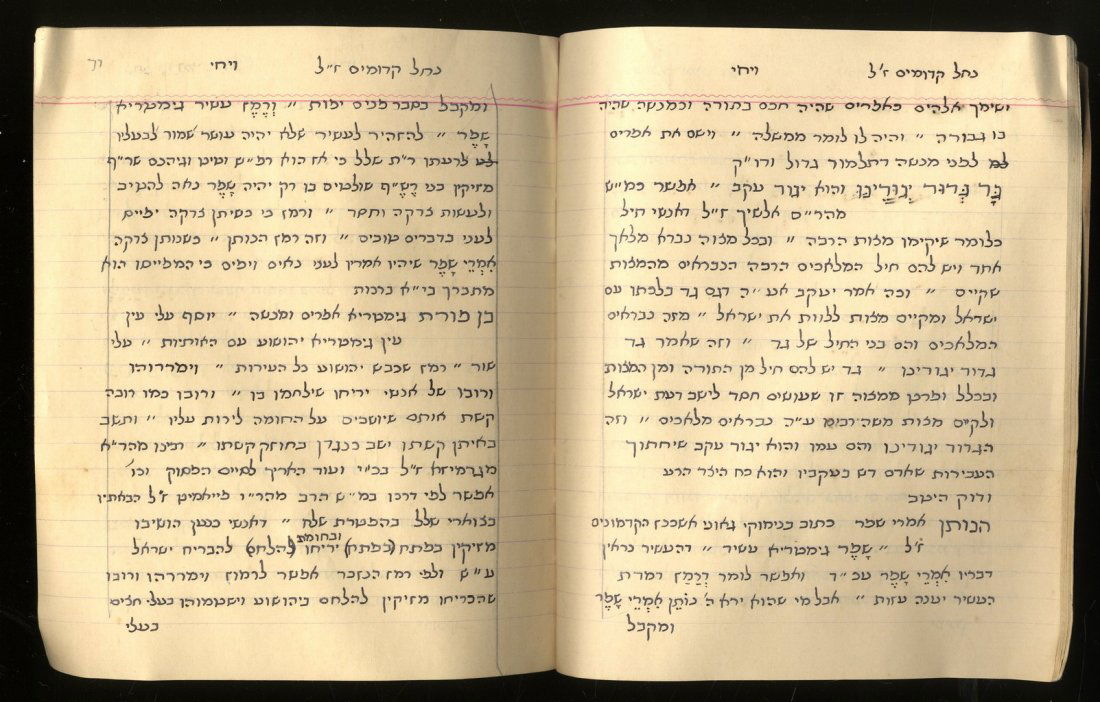 נחל קדומים ז״ל ויחי
ושימך אלהים כאפרים שהיה חכם בתורה וכמנשה שהיה
בו גבורה ״ והיה לו לומר ממשלה ״ וישם את אפרים
לפני מנשה דתלמוד גדול ודו״ק
גָּד גְּדוּד יְגוּדֶינּוּ והוא יגוד עקב ״ אפשר כמ״ש
מהר״ם אלשיך ז״ל דאנשי חיל
כלומר שיקיימו מצות הרבה ״ ובכל מצוה נברא מלאך
אחד ויש להם חיל המלאכים הרבה הנבראים מהמצות
שקיים ״ וכה אמר יעקב אע״ה דגם גד בלכתו עם
ישראל ומקיים מצות ללוות את ישראל ״ מזה נבראים
המלאכים והם בני החיל של גד ״ וזה שאמר גד
גדוד יגודינו ״ גד יש להם חיל מן התורה ומן המצות
ובכלל ופרטן ממצוה זו שעושים חסד לישב דעת ישראל
ולקיים מצות משה רבינו ע״ה נבראים מלאכים ״ וזה
הגדוד יגודינו והם עמו והוא יגוד עקב שיחתוך
העבירות שאדם דש בעקביו והוא כח היצר הרע
ודוק היטב
הנותן אמרי שפר כתוב בנימוקי גאוני אשכנז הקדמונים
ז״ל ״ שָׁפֶר גימטריא עשיר ״ דהעשיר נראין
דבריו אִמְרֵי שָׁפֶר עכ״ד ואפשר לומר דְרָמַז דמדת
העשיר יענה עזות ״ אבל מי שהוא ירא ה׳ נוֹתֵן אִמְרֵי שָׁפֶר
ומקבל
נחל קדומים ז״ל ויחי
ומקבל בסבר פנים יפות ״ וְרָמַז עשיר גימטריא
שָׁפֶר ״ להזהיר לעשיר שלא יהיה עושר שמור לבעליו
לרעתו ר״ת שלל כי אז הוא רמ״ש ושמו וניהפכ שר״ף
מזיקין בני רֶשֶׁ״ף שולטים בו רק יהיה שָׁפֶר נאה להטיב
ולעשות צדקה וחסד ״ ורמז כי כשיתן צדקה יפיים
לעני בדברים טובים ״ וזה רמז הנותן ״ כשנותן צדקה
אִמְרֵי שָׁפֶר שיהיו אמריו לעני נאים ויפים כי המפייסו הוא
מתברך בי״א ברכות
בן פורת גימטריא אפרים ומנשה ״ יוסף עלי עין
עין גימטריא יהושוע עם האותיות ״ עלי
שור ״ רמז שכבש יהושוע כל העירות ״ וימררוהו
ורובו של אנשי יריחו שילחמו בו ״ ורובו כמו רובה
קשת אותם שיושבים על החומה לירות עליו ״ ותשב
באיתן קשתו ישב כנגדן בחוזק קשתו ״ רבינו מהר״א
מגרמיזא ז״ל בכ״י ועוד האריך לסיים הפסוק וכו׳
אפשר לפי דרכו במ״ש הרב מהר״ו פייאמיטו ז״ל הבאתיו
בצוארי שלל בהפטרת שלח ״ דאנשי כנען הושיבו
מזיקין בפתח (בפתח) יריחו ובחומת (להלחם) להבריח ישראל
ע״ש ולפי רמז הנזכר אפשר לרמוז וימררהו ורובו
שהכריחו מזיקין להלחם ביהושוע וישטמוהו בעלי חצים
בעלי